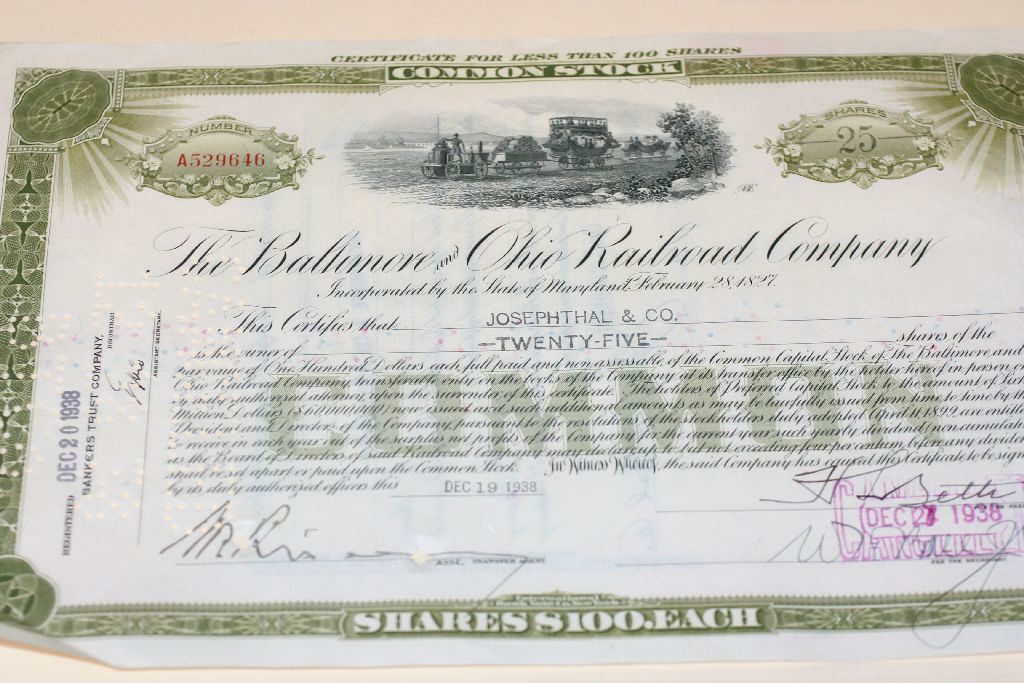 CERTIFICATE FOR LESS THAN 100 SHARES
COMMON STOCK
NUMBER
A529646
SHARES
25
The Baltimore and Ohio Railroad Company
Incorporated by the State of Maryland, February 28, 1827.
This Certifies that JOSEPHTHAL & CO.
is the owner of —TWENTY-FIVE— shares of the
par value of One Hundred Dollars each, full paid and non assessable of the Common Capital Stock of The Baltimore and
Ohio Railroad Company, transferable only on the books of the Company at its transfer office by the holder hereof in person or
by duly authorized attorney, upon the surrender of this certificate. The holders of Preferred Capital Stock to the amount of
Million Dollars ($60,000,000) now issued and such additional amounts as may be lawfully issued from time to time by the
President and Directors of the Company, pursuant to the resolution of the stockholders duly adopted April 11, 1899, are
to receive in each year out of the surplus net profits of the Company for the current year such yearly dividend (non cumulative)
as the Board of Directors of said Railroad Company may declare up to but not exceeding four per centum, before any
shall be set apart or paid upon the Common Stock. In Witness Whereof, the said Company has caused this Certificate to be
by its duly authorized officers this DEC 19 1938
REGISTERED DEC 20 1938
BANKERS TRUST COMPANY,
REGISTRAR
ASSIST. SECRETARY.
DEC 24 1938
CANCELLED
ASST. TRANSFER AGENT
FOR THE SECRETARY
SHARES $100. EACH